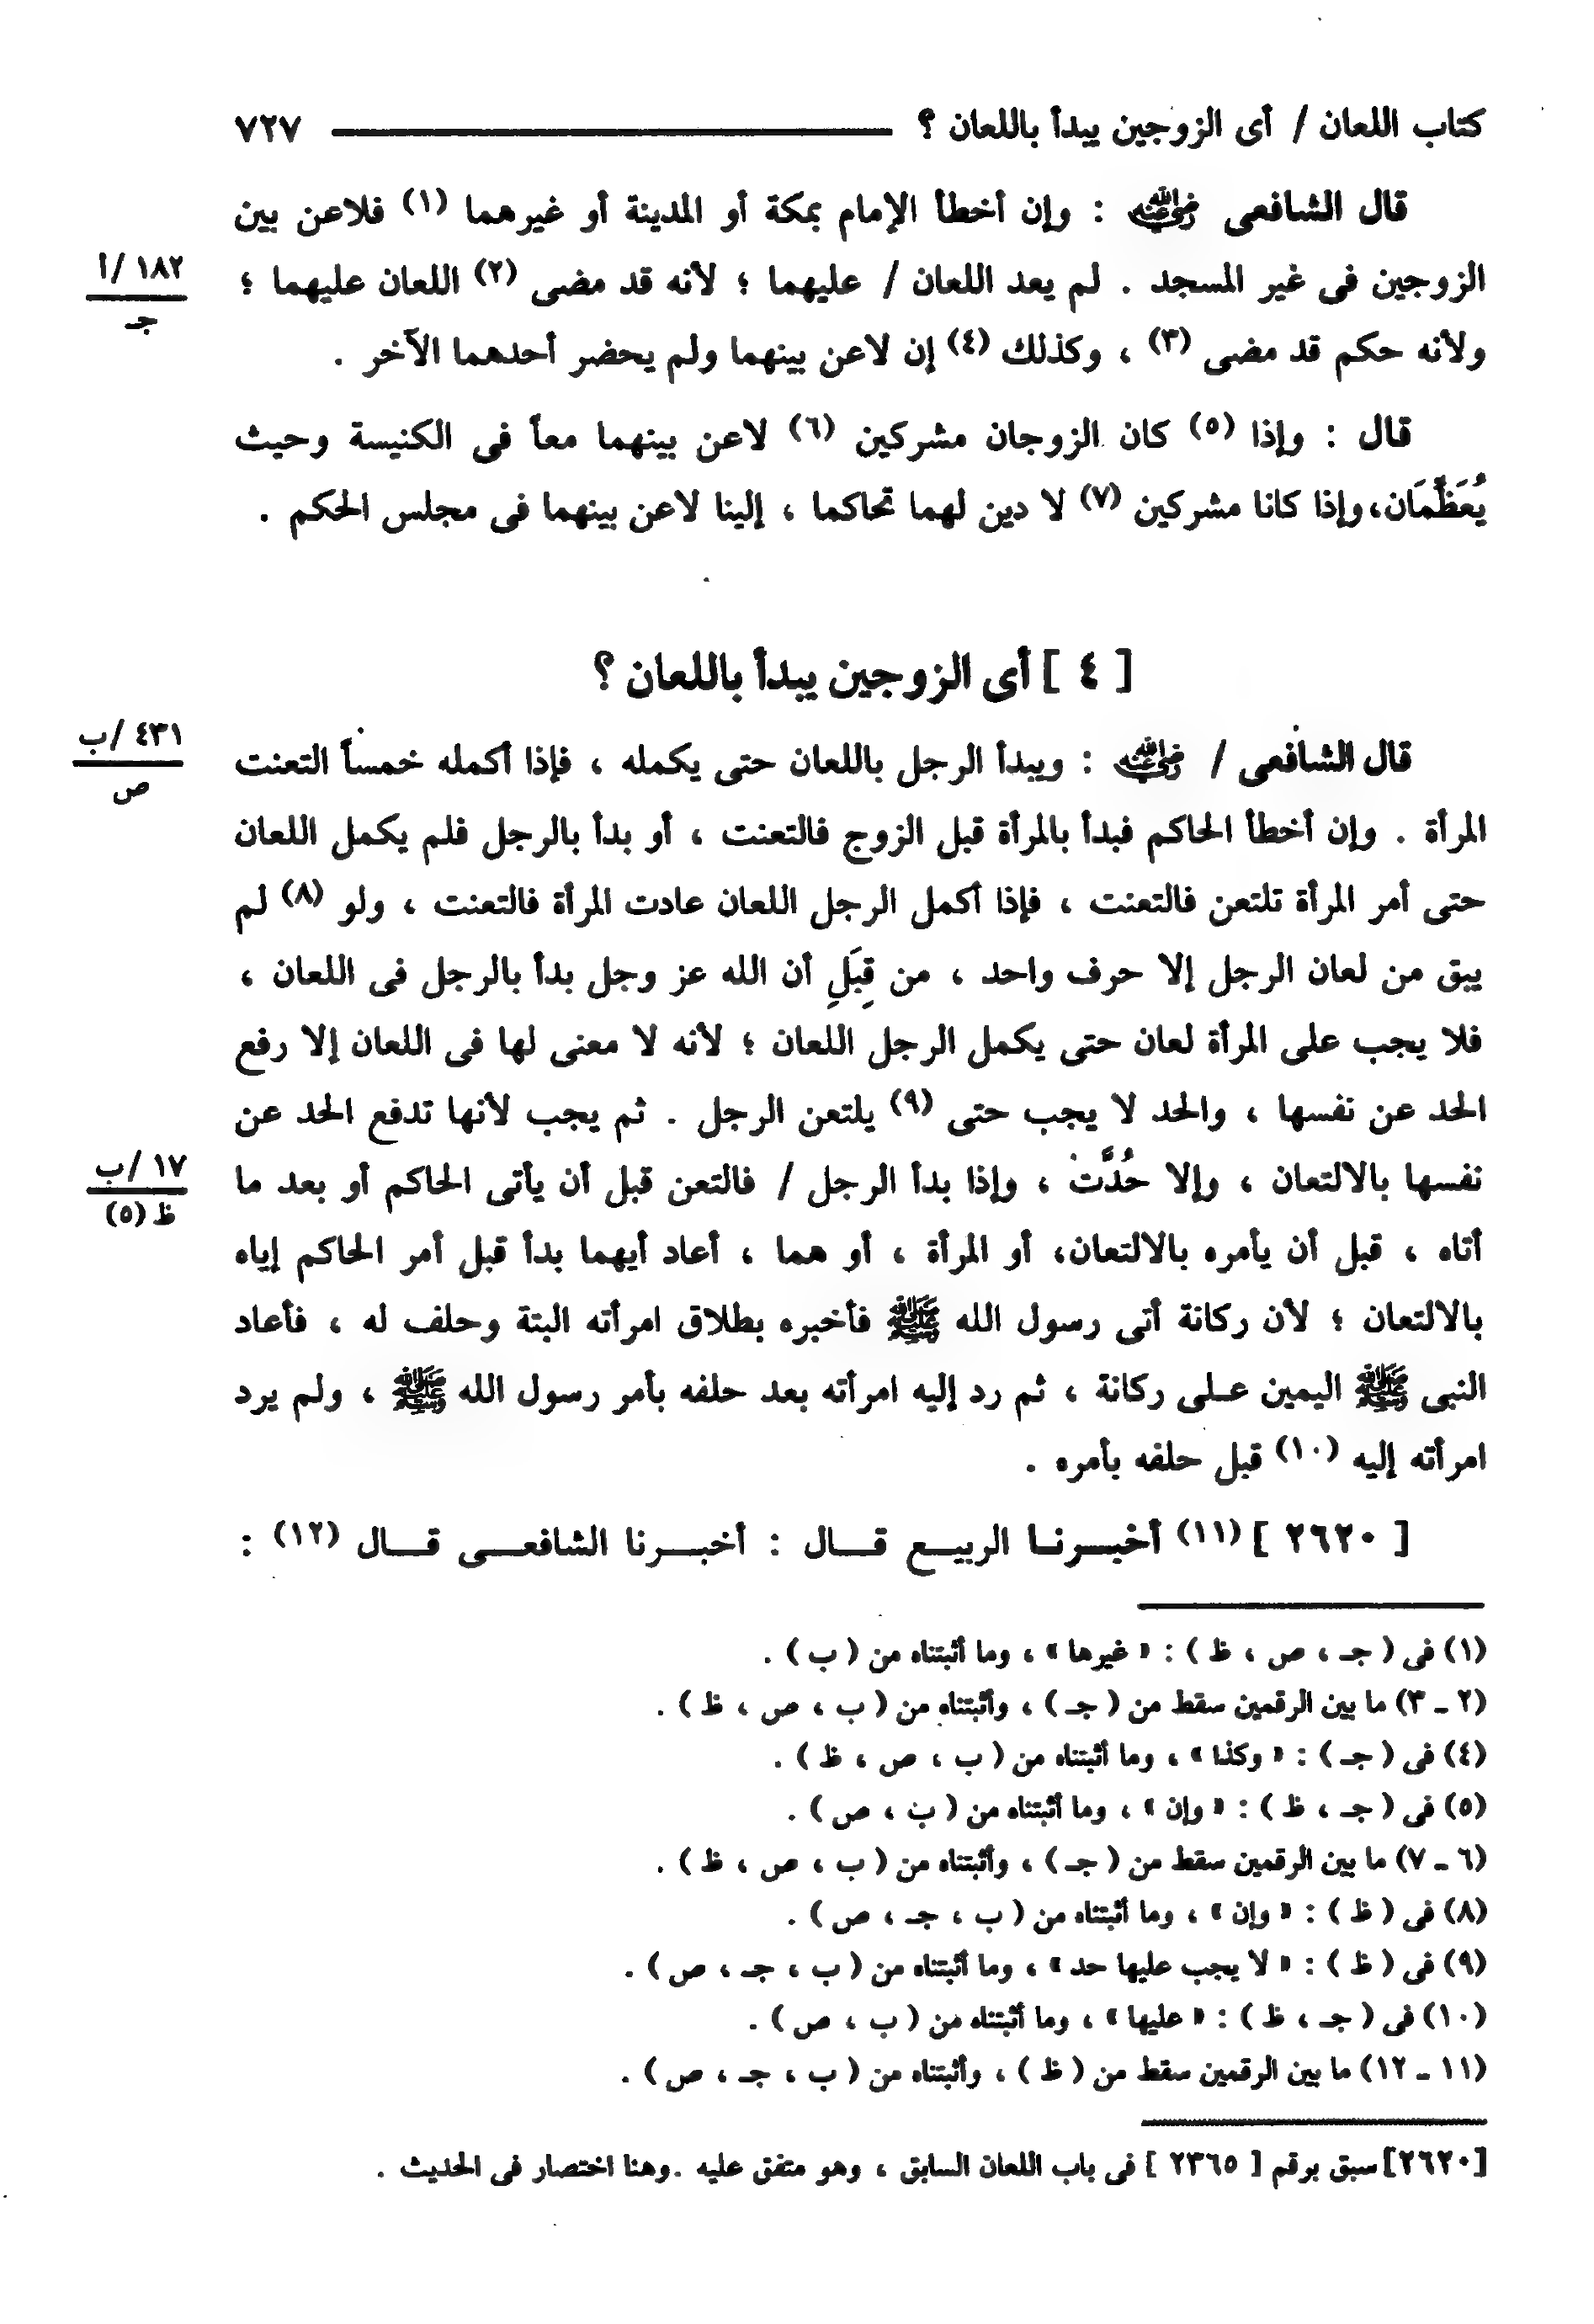 كتاب اللعان / أى الزوجين يبدأ باللعان ؟ ٧٢٧
قال الشافعى رضي الله عنه : وإن أخطأ الإمام بمكة أو المدينة أو غيرهما (١) فلاعن بين
الزوجين فى غير المسجد . لم يعد اللعان / عليهما ؛ لأنه قد مضى (٢) اللعان عليهما ؛
١٨٢ /أ
جـ
ولأنه حكم قد مضى (٣) ، وكذلك (٤) إن لاعن بينهما ولم يحضر أحدهما الآخر .
قال : وإذا (٥) كان الزوجان مشركين (٦) لاعن بينهما معاً فى الكنيسة وحيث
يُعَظِّمَان،وإذا كانا مشركين (٧) لا دين لهما تحاكما ، إلينا لاعن بينهما فى مجلس الحكم .
[ ٤ ] أى الزوجين يبدأ باللعان ؟
قال الشافعى / رضي الله عنه : ويبدأ الرجل باللعان حتى يكمله ، فإذا أكمله خمساً التعنت
٤٣١ /ب
ص
المرأة . وإن أخطأ الحاكم فبدأ بالمرأة قبل الزوج فالتعنت ، أو بدأ بالرجل فلم يكمل اللعان
حتى أمر المرأة تلتعن فالتعنت ، فإذا أكمل الرجل اللعان عادت المرأة فالتعنت ، ولو (٨) لم
يبق من لعان الرجل إلا حرف واحد ، من قِبَلِ أن الله عز وجل بدأ بالرجل فى اللعان ،
فلا يجب على المرأة لعان حتى يكمل الرجل اللعان ؛ لأنه لا معنى لها فى اللعان إلا رفع
الحد عن نفسها ، والحد لا يجب حتى (٩) يلتعن الرجل . ثم يجب لأنها تدفع الحد عن
نفسها بالالتعان ، وإلا حُدَّت ، وإذا بدأ الرجل / فالتعن قبل أن يأتى الحاكم أو بعد ما
١٧ /ب
ظ (٥)
أتاه ، قبل أن يأمره بالالتعان، أو المرأة ، أو هما ، أعاد أيهما بدأ قبل أمر الحاكم إياه
بالالتعان ؛ لأن ركانة أتى رسول الله ﷺ فأخبره بطلاق امرأته البتة وحلف له ، فأعاد
النبى ﷺ اليمين عـلى ركانة ، ثم رد إليه امرأته بعد حلفه بأمر رسول الله ﷺ ، ولم يرد
امرأته إليه (١٠) قبل حلفه بأمره .
[ ٢٦٢٠ ] (١١) أخبـــرنـا الربيـــع قـــال : أخبـــرنا الشافعـــى قـــال (١٢) :
(١) فى ( جـ ، ص ، ظ ) : « غيرها » ، وما أثبتناه من ( ب ) .
(٢ ـ ٣) ما بين الرقمين سقط من ( جـ ) ، وأثبتناه من ( ب ، ص ، ظ ) .
(٤) فى ( جـ ) : « وكذا » ، وما أثبتناه من ( ب ، ص ، ظ ) .
(٥) فى ( جـ ، ظ ) : « وإن » ، وما أثبتناه من ( ب ، ص ) .
(٦ ـ ٧) ما بين الرقمين سقط من ( جـ ) ، وأثبتناه من ( ب ، ص ، ظ ) .
(٨) فى ( ظ ) : « وإن » ، وما أثبتناه من ( ب ، جـ ، ص ) .
(٩) فى ( ظ ) : « لا يجب عليها حد » ، وما أثبتناه من ( ب ، جـ ، ص ) .
(١٠) فى ( جـ ، ظ ) : « عليها » ، وما أثبتناه من ( ب ، ص ) .
(١١ ـ ١٢) ما بين الرقمين سقط من ( ظ ) ، وأثبتناه من ( ب ، جـ ، ص ) .
[٢٦٢٠] سبق برقم [ ٢٣٦٥ ] فى باب اللعان السابق ، وهو متفق عليه .وهنا اختصار فى الحديث .